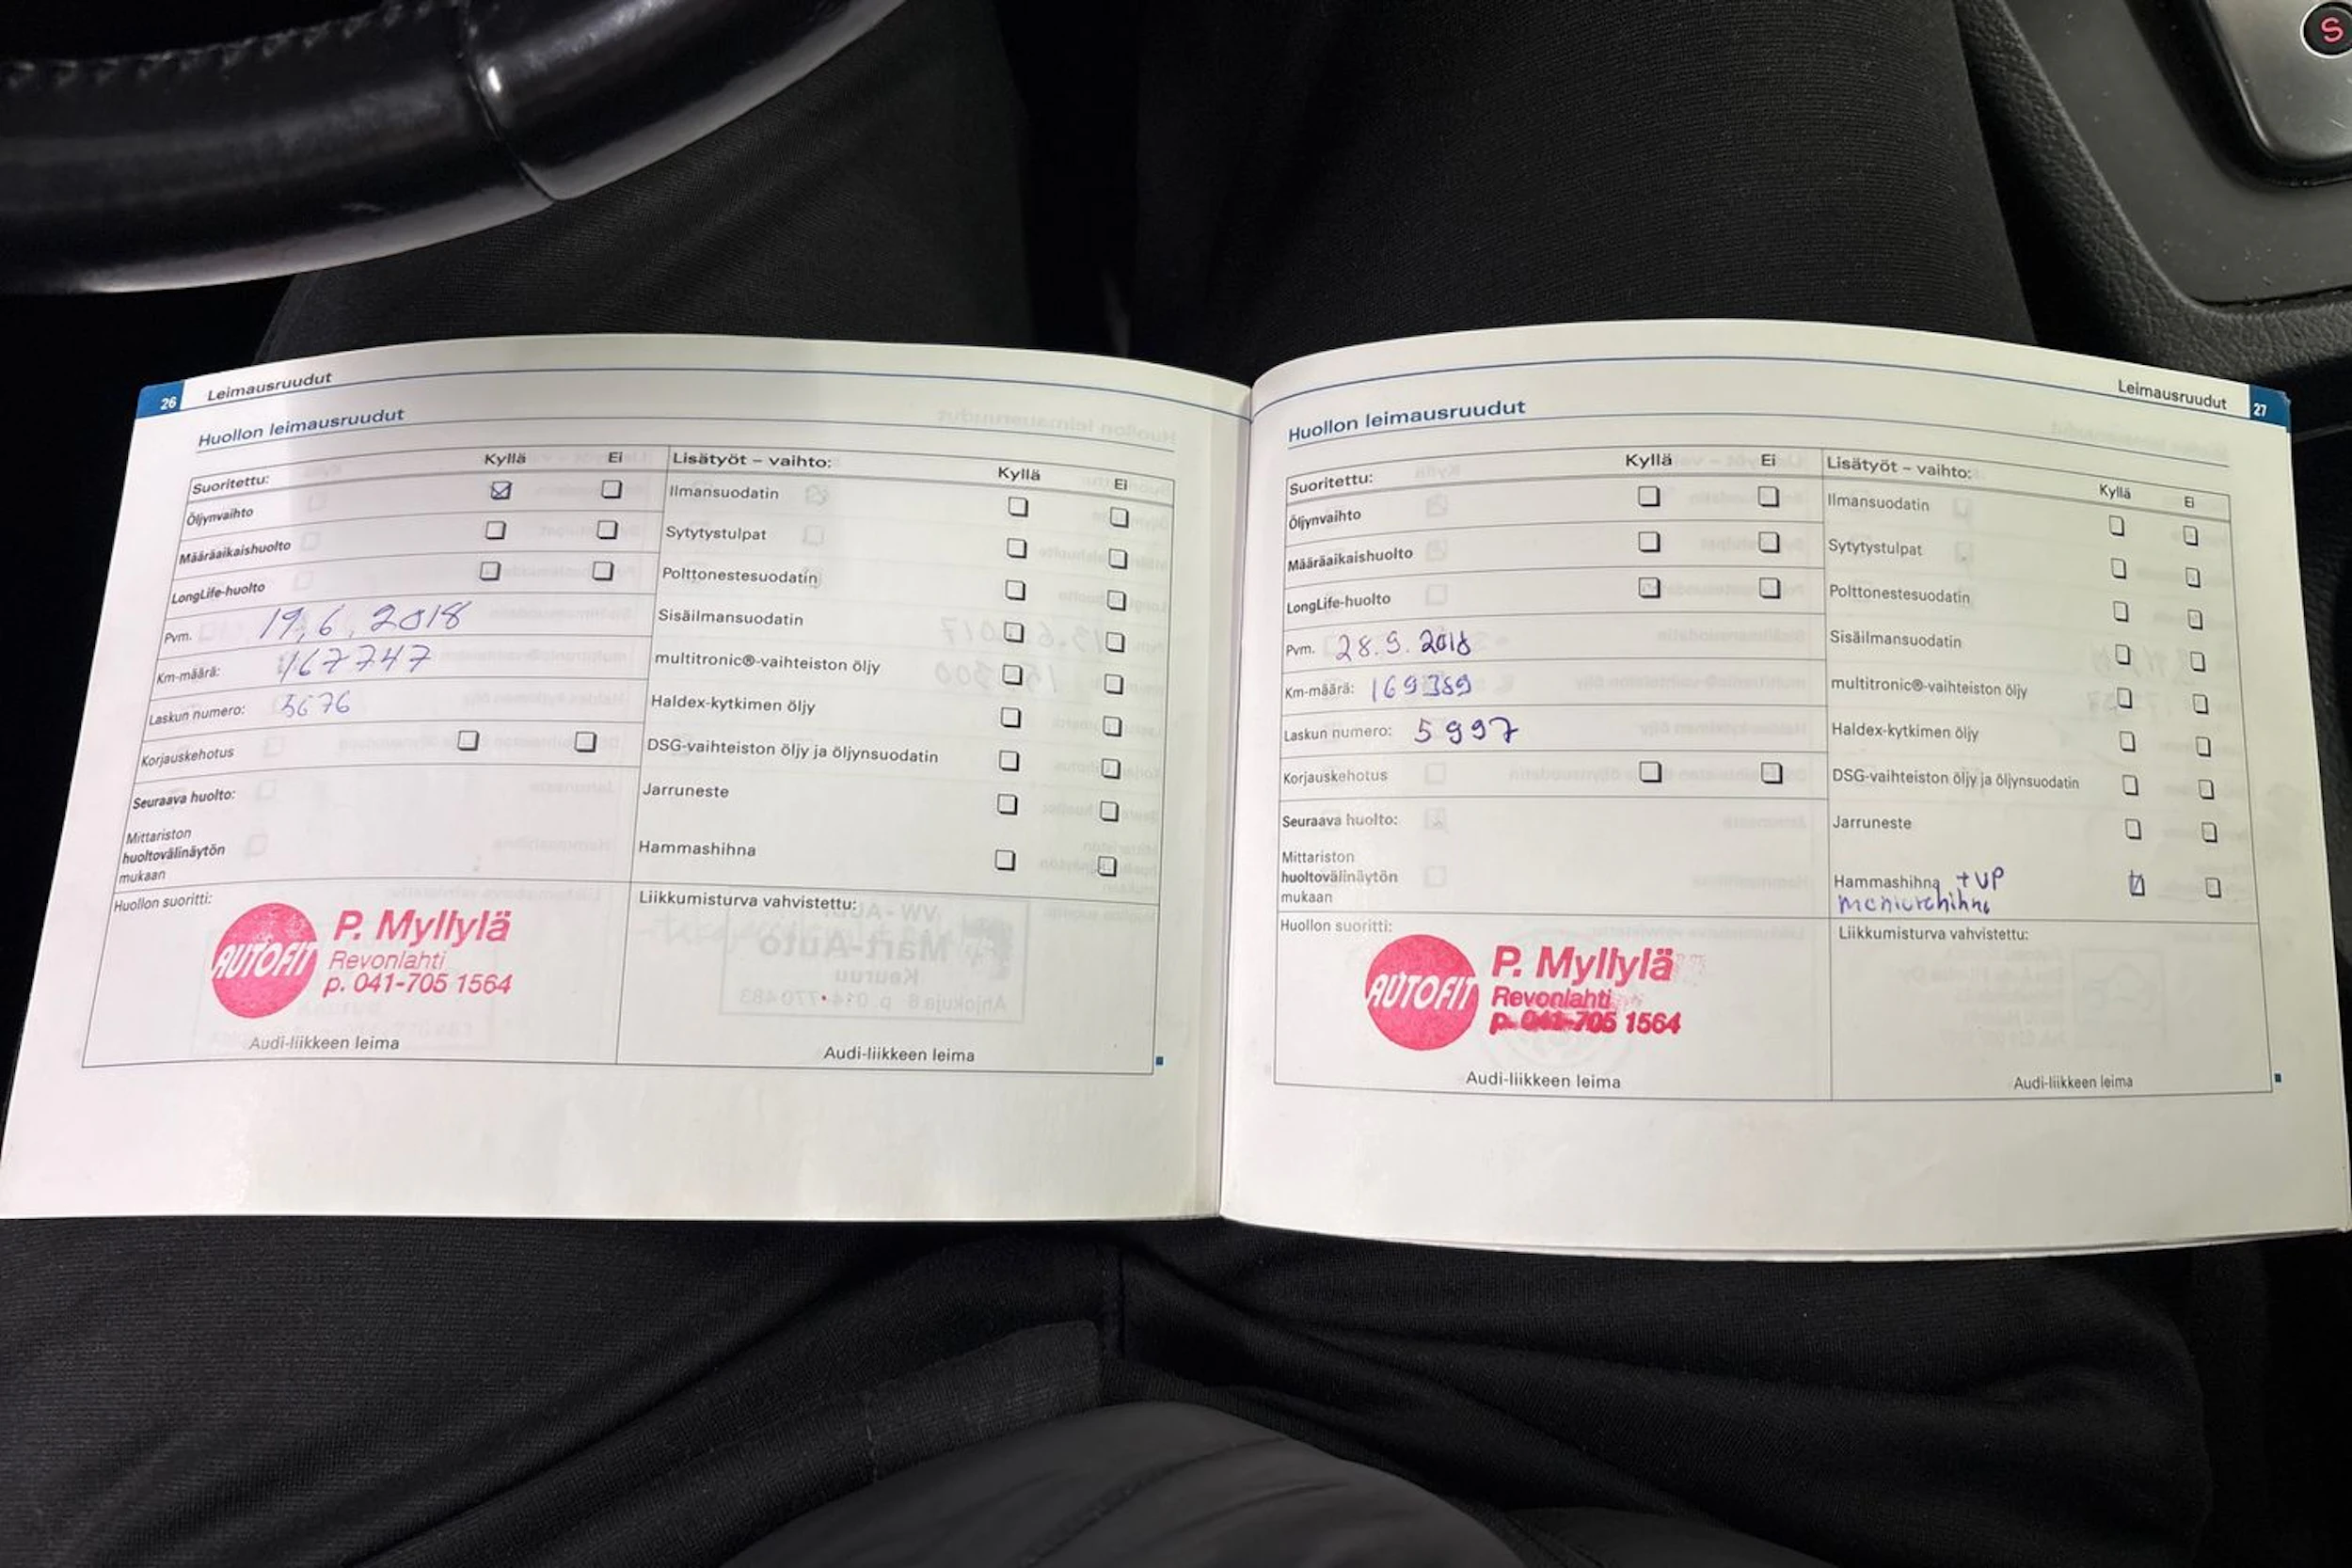 S
26 Leimausruudut
Huollon leimausruudut
Suoritettu: Kyllä Ei
Öljynvaihto
Määräaikaishuolto
LongLife-huolto
Pvm. 19.6.2018
Km-määrä: 167747
Laskun numero: 5676
Korjauskehotus
Seuraava huolto:
Mittariston
huoltovälinäytön
mukaan
Huollon suoritti:
AUTOFIT
P. Myllylä
Revonlahti
p. 041-705 1564
Audi-liikkeen leima
Lisätyöt – vaihto: Kyllä Ei
Ilmansuodatin
Sytytystulpat
Polttonestesuodatin
Sisäilmansuodatin
multitronic®-vaihteiston öljy
Haldex-kytkimen öljy
DSG-vaihteiston öljy ja öljynsuodatin
Jarruneste
Hammashihna
Liikkumisturva vahvistettu:
Audi-liikkeen leima
Leimausruudut 27
Huollon leimausruudut
Suoritettu: Kyllä Ei
Öljynvaihto
Määräaikaishuolto
LongLife-huolto
Pvm. 28.9.2018
Km-määrä: 169389
Laskun numero: 5997
Korjauskehotus
Seuraava huolto:
Mittariston
huoltovälinäytön
mukaan
Huollon suoritti:
AUTOFIT
P. Myllylä
Revonlahti
p. 041-705 1564
Audi-liikkeen leima
Lisätyöt – vaihto: Kyllä Ei
Ilmansuodatin
Sytytystulpat
Polttonestesuodatin
Sisäilmansuodatin
multitronic®-vaihteiston öljy
Haldex-kytkimen öljy
DSG-vaihteiston öljy ja öljynsuodatin
Jarruneste
Hammashihna + VP
Liikkumisturva vahvistettu:
Audi-liikkeen leima